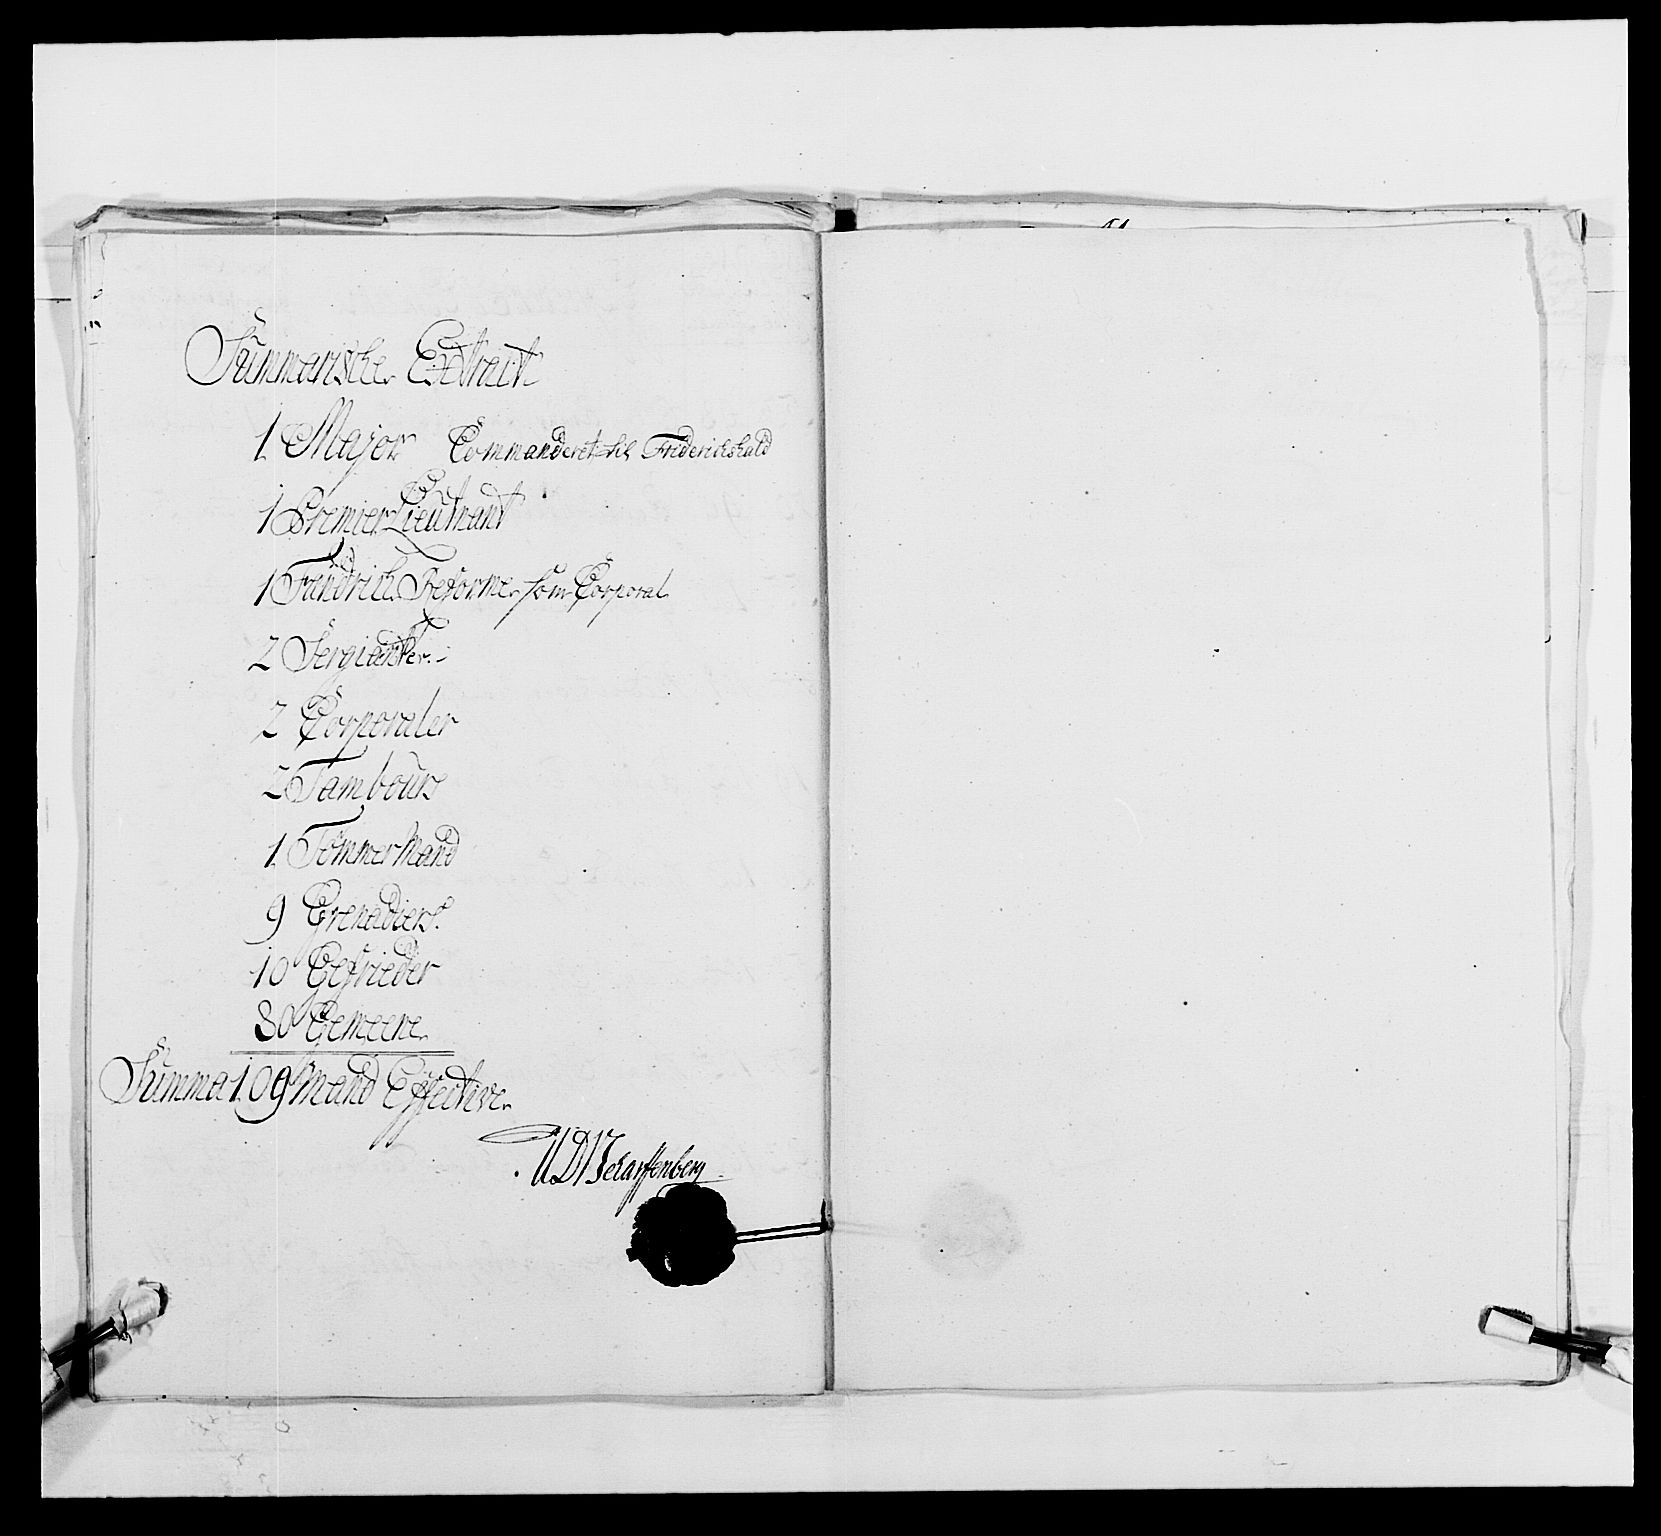 Summarischer Extract
1 Major Commanderet til Friderichshald
1 Premier Lieutnant
1 Fändrich Reforme som Corporal
2 Sergianter.
2 Corporaler
2 Tambours
1 Tømmermand
9 Grenadiers.
10 Gefrieder
80 Gemeene
Summa 109 Mand Effective
Scharffenberg